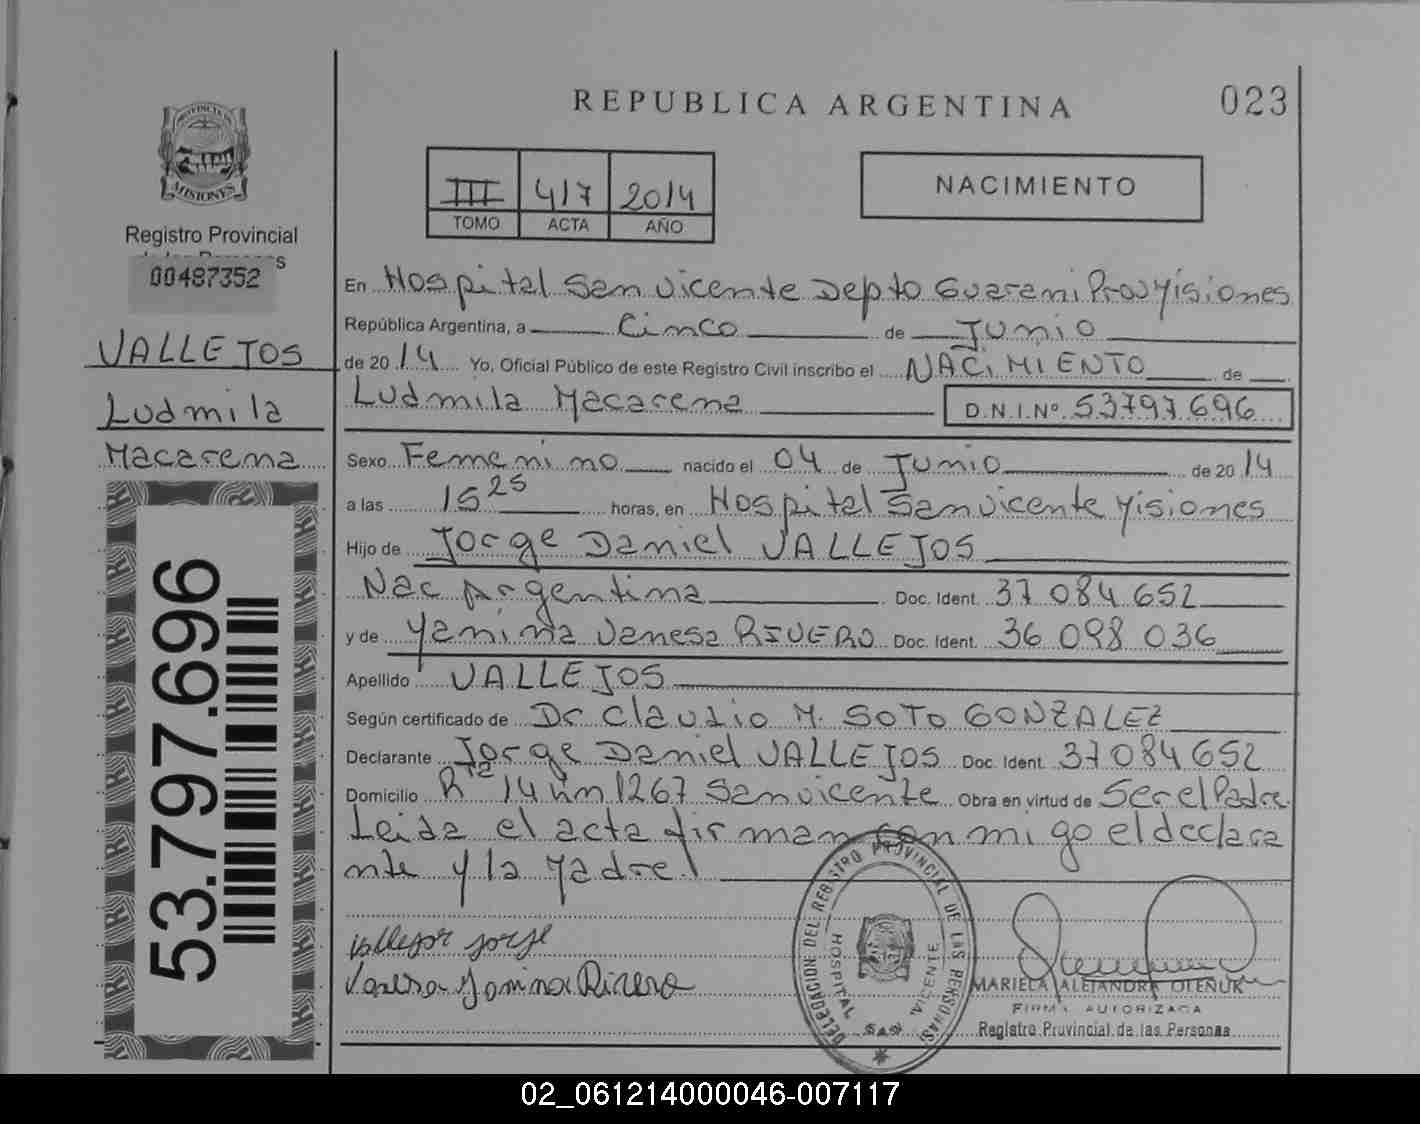 REPUBLICA ARGENTINA
023
PROVINCIA DE
MISIONES
Registro Provincial
de las Personas
00487352
VALLEJOS
Ludmila
Macarena
53.797.696
III 417 2014
TOMO ACTA AÑO
NACIMIENTO
En Hospital San Vicente Depto Guarani Prov Misiones
República Argentina, a Cinco de Junio
de 2014 Yo, Oficial Público de este Registro Civil inscribo el NACIMIENTO de
Ludmila Macarena D.N.I.Nº 53797696
Sexo Femenino nacido el 04 de Junio de 2014
a las 15 25 horas, en Hospital San Vicente Misiones
Hijo de Jorge Daniel VALLEJOS
Nac Argentina Doc. Ident. 37 084 652
y de Yanina Vanesa RIVERO Doc. Ident. 36 098 036
Apellido VALLEJOS
Según certificado de Dr Claudio M. SOTO GONZALEZ
Declarante Jorge Daniel VALLEJOS Doc. Ident. 37084652
Domicilio Rta 14 Km 1267 San Vicente Obra en virtud de Ser el Padre
Leida el acta firman con migo el declara
nte y la Madre
Vallejos Jorge
Vanesa Yanina Rivero
DELEGACION DEL REGISTRO PROVINCIAL DE LAS PERSONAS
HOSPITAL SAN VICENTE
MARIELA ALEJANDRA OLEÑUK
FIRMA AUTORIZADA
Registro Provincial de las Personas
02_061214000046-007117